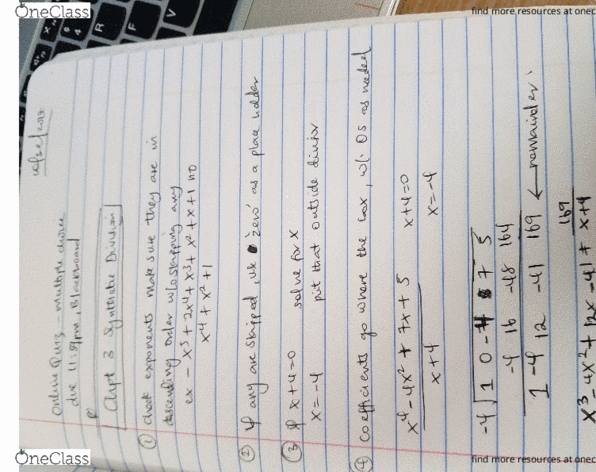 OneClass
find more resources at onec
Online Quiz - multiple choice
due 11:59pm, Blackboard
Chpt 3 Synthetic Division
① check exponents make sure they are in
descending order w/o skipping any
ex - x³ + 2x⁴ + x³ + x² + x + 1 no
x⁴ + x² + 1
② if any are skipped, use "zero" as a place holder
③ if x+4=0 solve for x
x=-4 put that outside divisor
④ coefficients go where the box, w/ 0s as needed
x⁴ - 4x² + 7x + 5 x+4=0
x+4 x=-4
-4 1 0 -4 7 5
-4 16 -48 164
1 -4 12 -41 169 ← remainder
x³ - 4x² + 12x - 41 + 169
x+4
OneClass
find more resources at onec